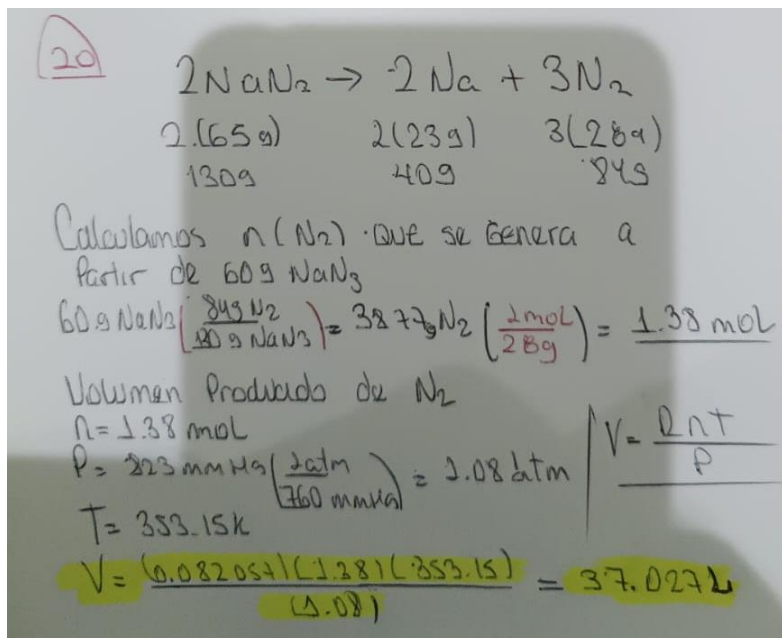 20
2NaN₂ → 2Na + 3N₂
2.(65g) 2(23g) 3(28g)
130g 40g 84g
Calculamos n(N₂) que se Genera a
Partir de 60g NaN₃
60g NaN₂ (84g N₂ / 130g NaN₃) = 38.77g N₂ (1mol / 28g) = 1.38 mol
Volumen Producido de N₂
n= 1.38 mol
P= 823 mmHg (1atm / 760 mmHg) = 1.08 atm
V= RnT / P
T= 353.15K
V= (0.082057)(1.38)(353.15) / (1.08) = 37.027L